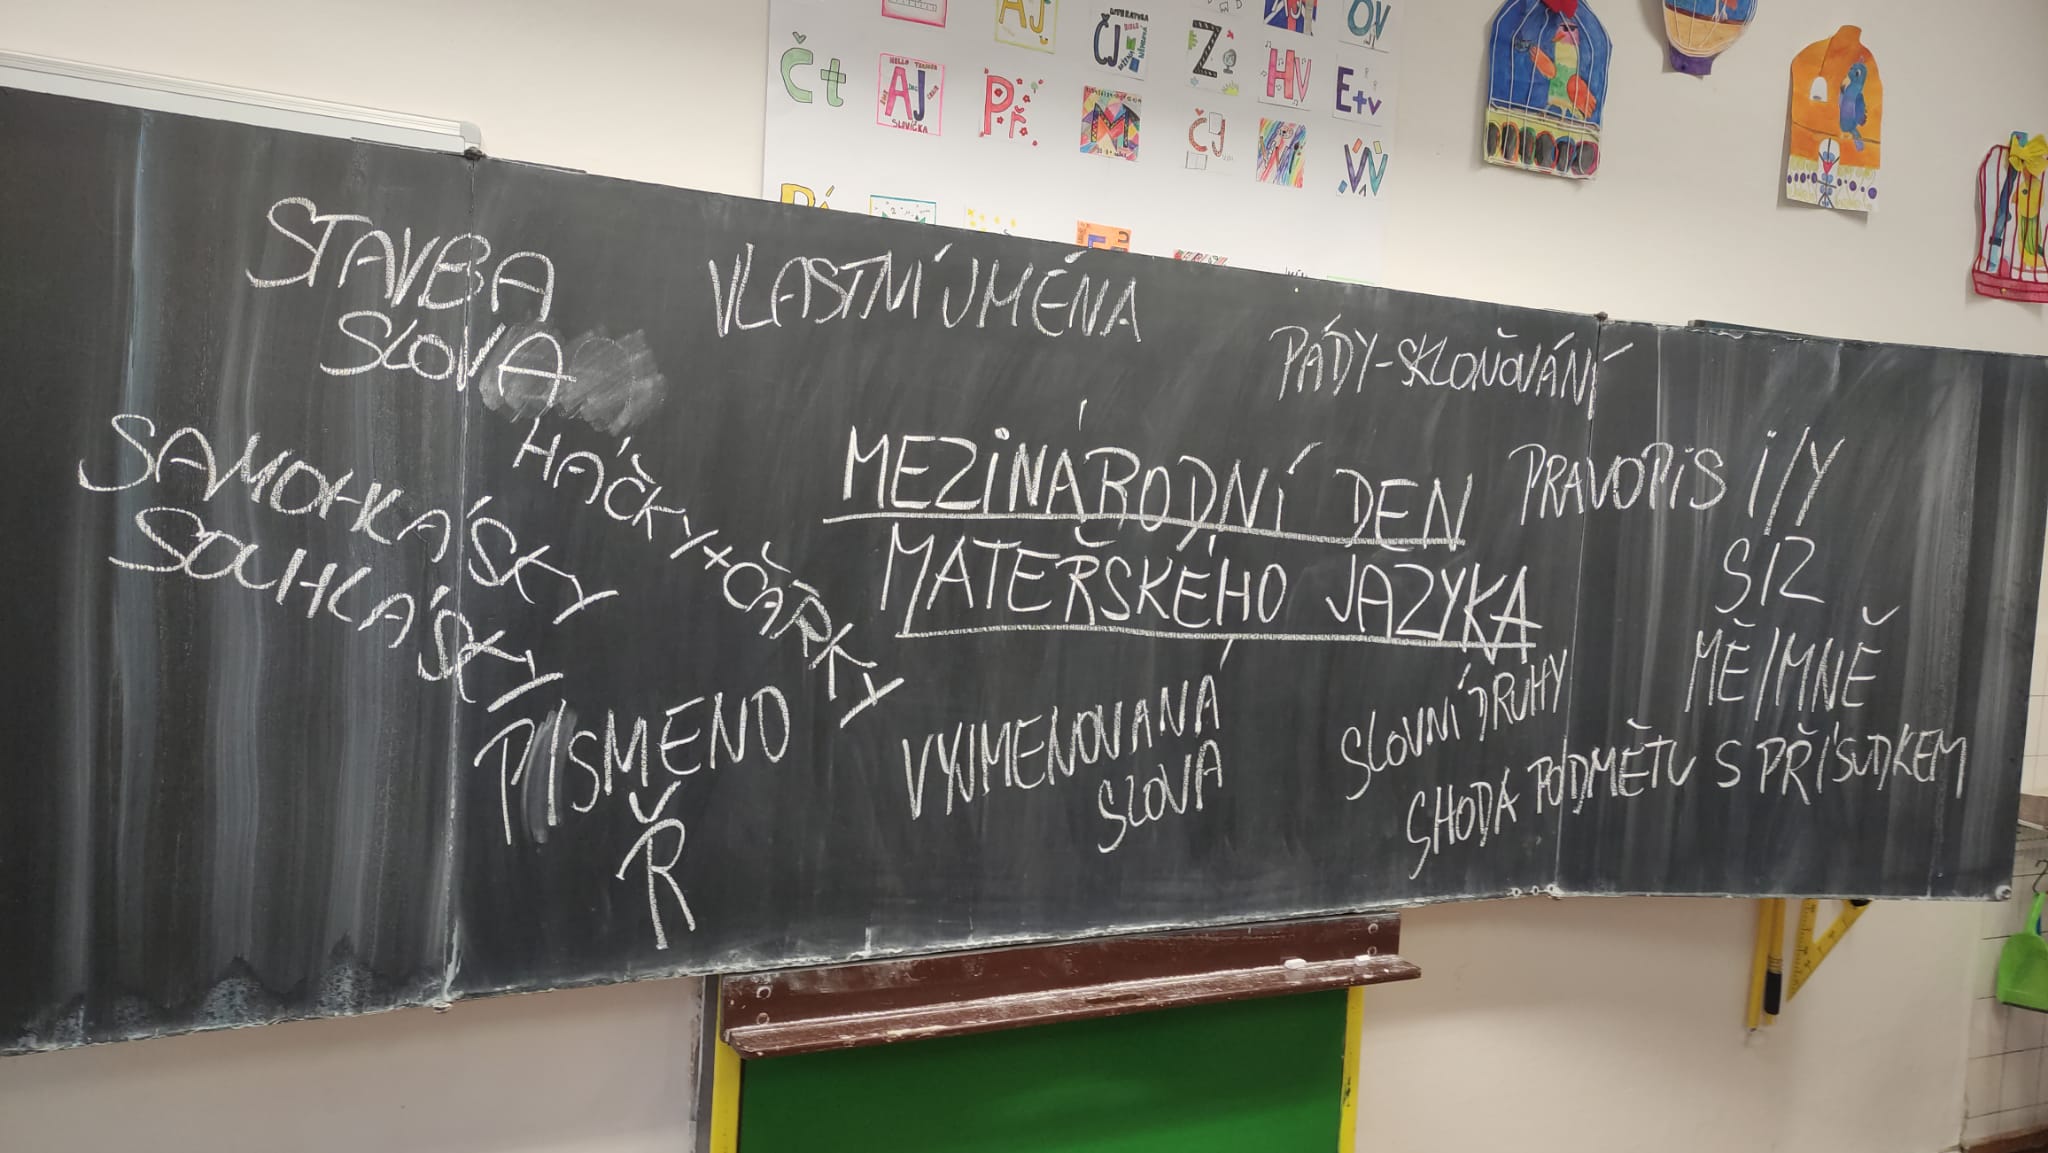 Čt
AJ
Př
M
ČJ
Z
HV
OV
E+V
VV
ČJ
AJ
HELLO
SLOVÍČKA
LITERATURA
STAVBA
SLOVA
VLASTNÍ JMÉNA
PÁDY-SKLOŇOVÁNÍ
SAMOHLÁSKY
SOUHLÁSKY
HÁČKY+ČÁRKY
MEZINÁRODNÍ DEN
MATEŘSKÉHO JAZYKA
PRAVOPIS I/Y
S/Z
MĚ/MNĚ
PÍSMENO
Ř
VYJMENOVANÁ
SLOVA
SLOVNÍ DRUHY
SHODA PODMĚTU S PŘÍSUDKEM